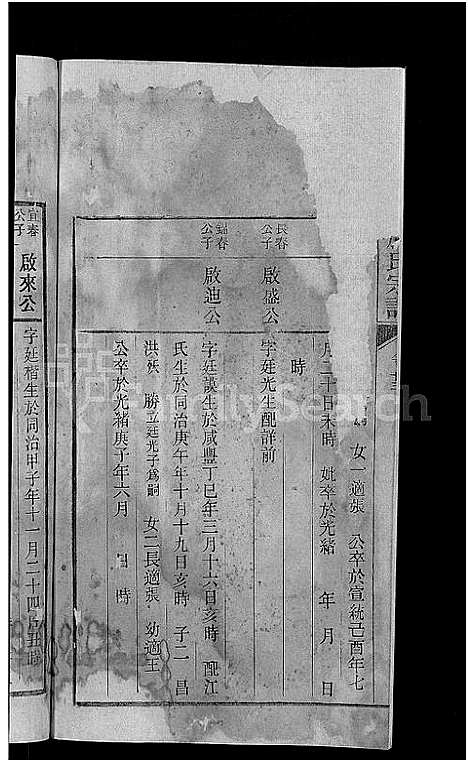 氏宗譜
女一適張 公卒於宣統己酉年七
月二十日未時 妣卒於光緒 年 月 日
時
長春公子 啟盛公 字廷光生配詳前
宜春公子 啟迪公 字廷謨生於咸豐丁巳年三月十六日亥時 配江
氏生於同治庚午年十月十九日亥時 子二 昌
洪 勝立廷光子為嗣 女二長適張 幼適王
公卒於光緒庚子年六月 日 時
宜春公子 啟來公 字廷楷生於同治甲子年十一月二十四日丑時
FamilySearch